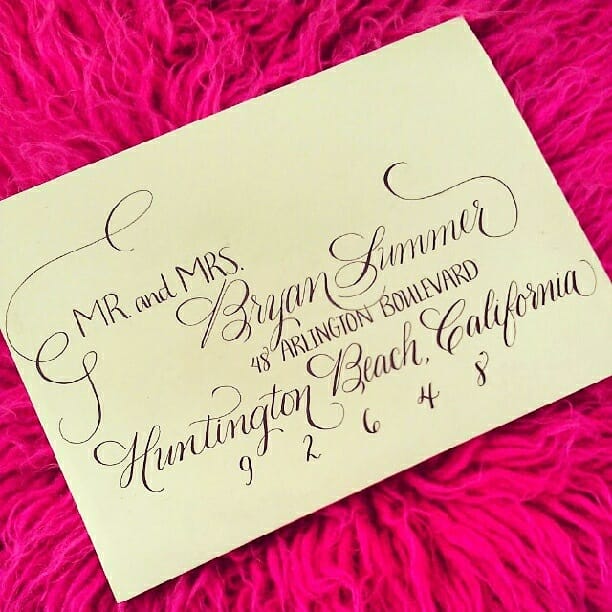 MR. and MRS.
Bryan Summer
48 ARLINGTON BOULEVARD
Huntington Beach, California
9 2 6 4 8